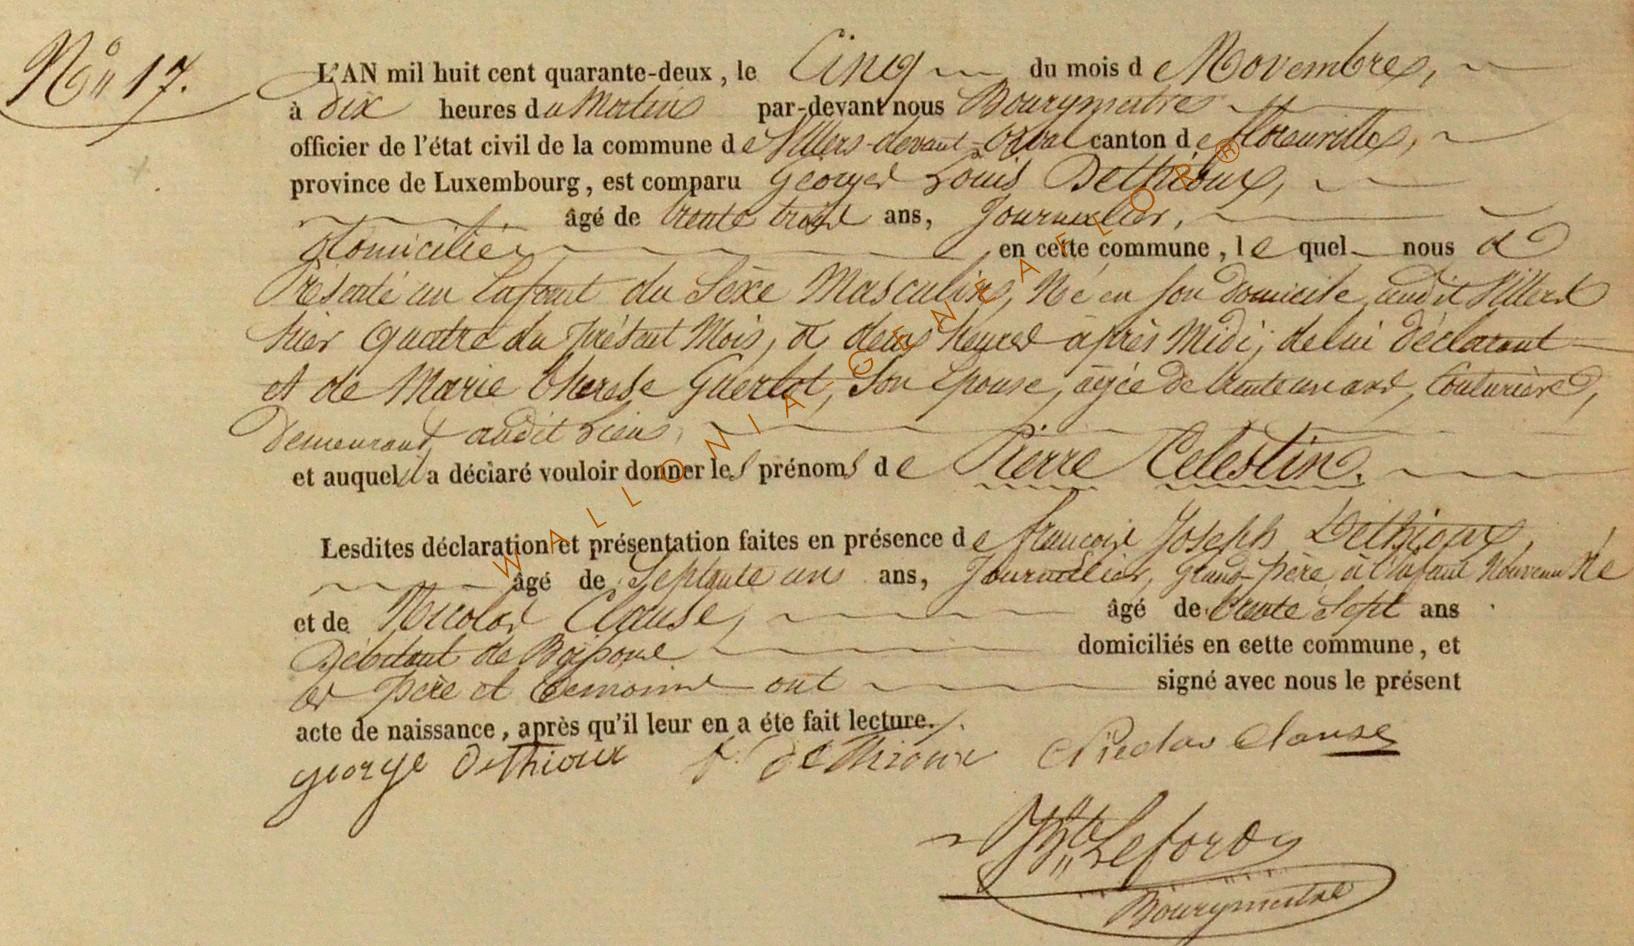 N° 17.
L'AN mil huit cent quarante-deux, le Cinq du mois de Novembre,
à dix heures du Matin par-devant nous Bourgmestre
officier de l'état civil de la commune de Villers-devant-Orval canton de florenville,
province de Luxembourg, est comparu George Louis Dethioux,
âgé de trente trois ans, Journalier,
domicilié en cette commune, lequel nous a
Présenté un Enfant du Sèxe Masculin, Né en son Domicile audit Villers
hier quatre du présent Mois, à deux heures après Midi, de lui déclarant
et de Marie Thérèse Guerlot, Son Epouse, agée de trente un ans, Couturière,
Demeurant audit Lieu,
et auquel il a déclaré vouloir donner les prénoms de Pierre Celestin.
Lesdites déclaration et présentation faites en présence de francois Joseph Dethioux,
âgé de Septante un ans, Journalier, grand-père à l'enfant Nouveau Né
et de Nicolas Clause, âgé de trente Sept ans
Débitant de Boissone domiciliés en cette commune, et
les père et temoins ont signé avec nous le présent
acte de naissance, après qu'il leur en a éte fait lecture.
george Dethioux f. j. deThioux Nicolas Clause
Lefort
Bourgmestre
WALLONIA GENEAFLOR®